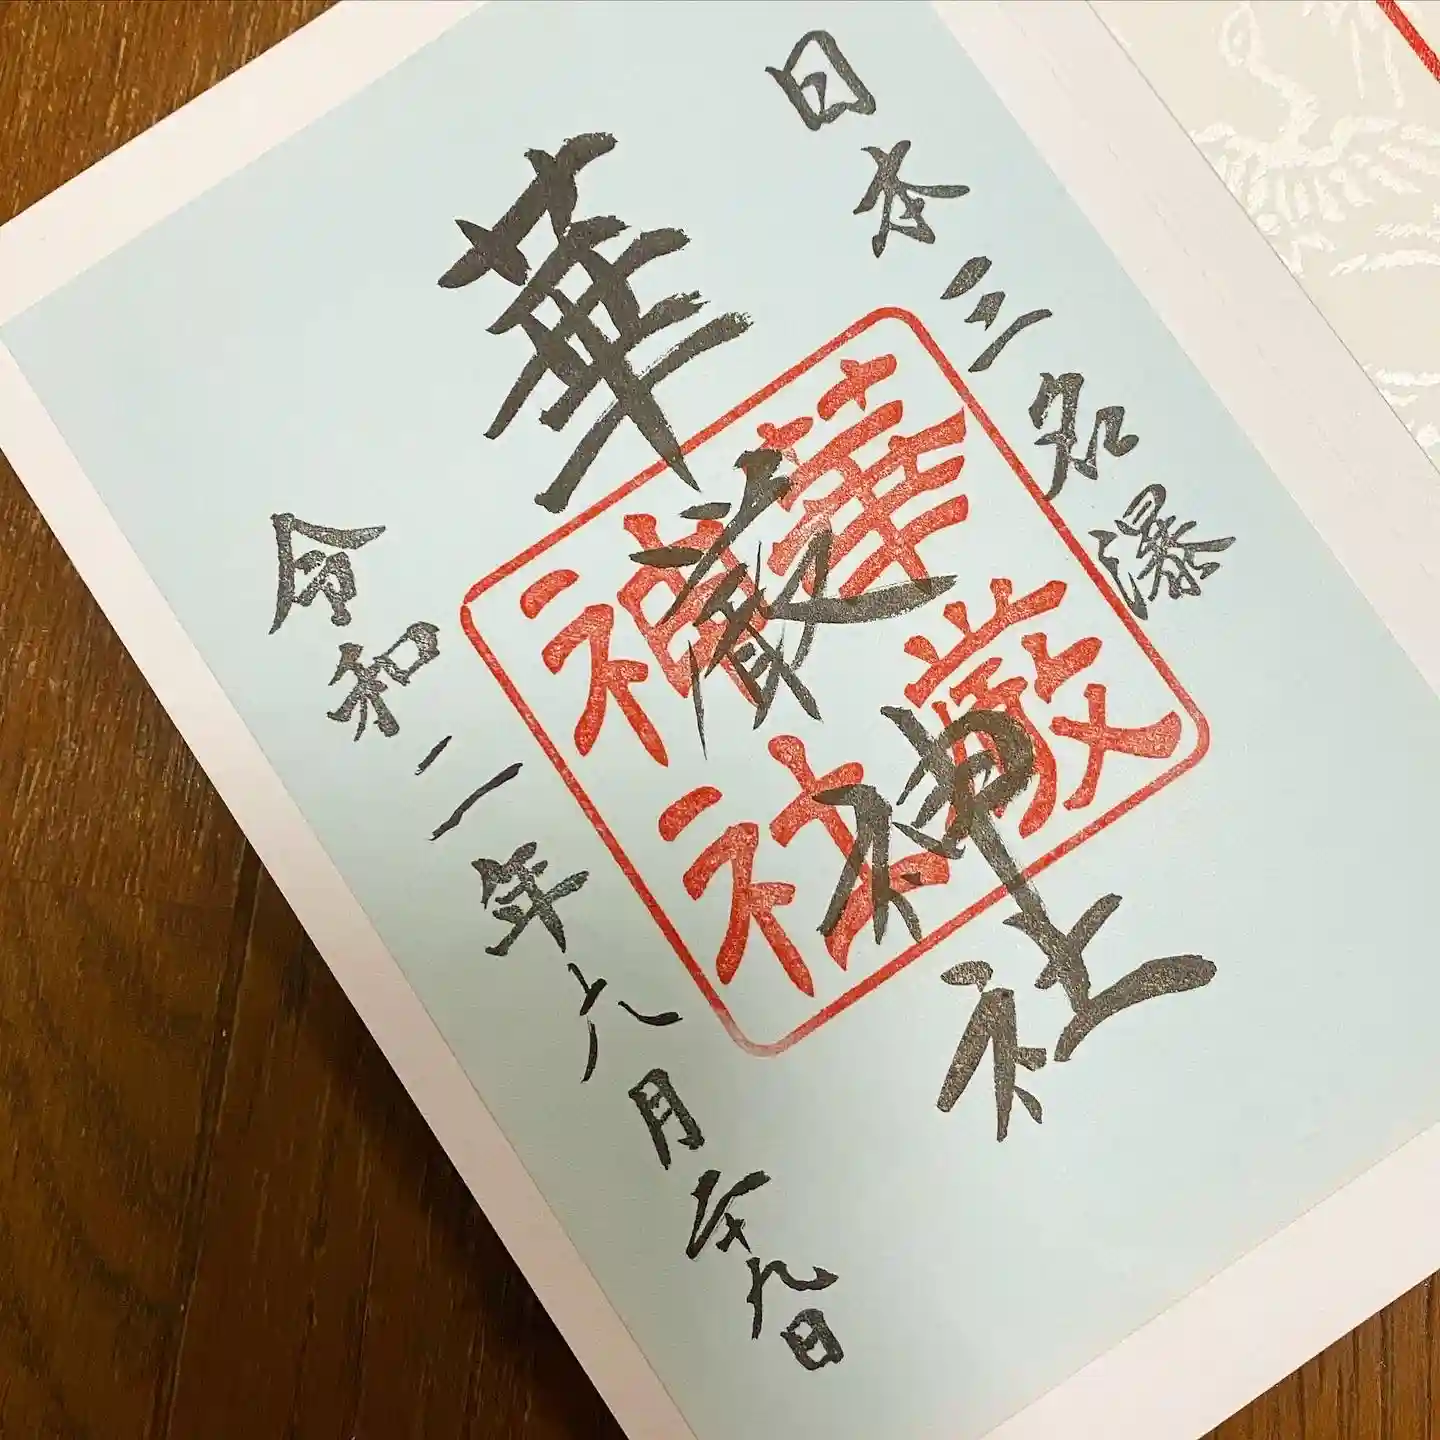 日本三名瀑
華厳神社
華厳
神社
令和二年六月二十九日